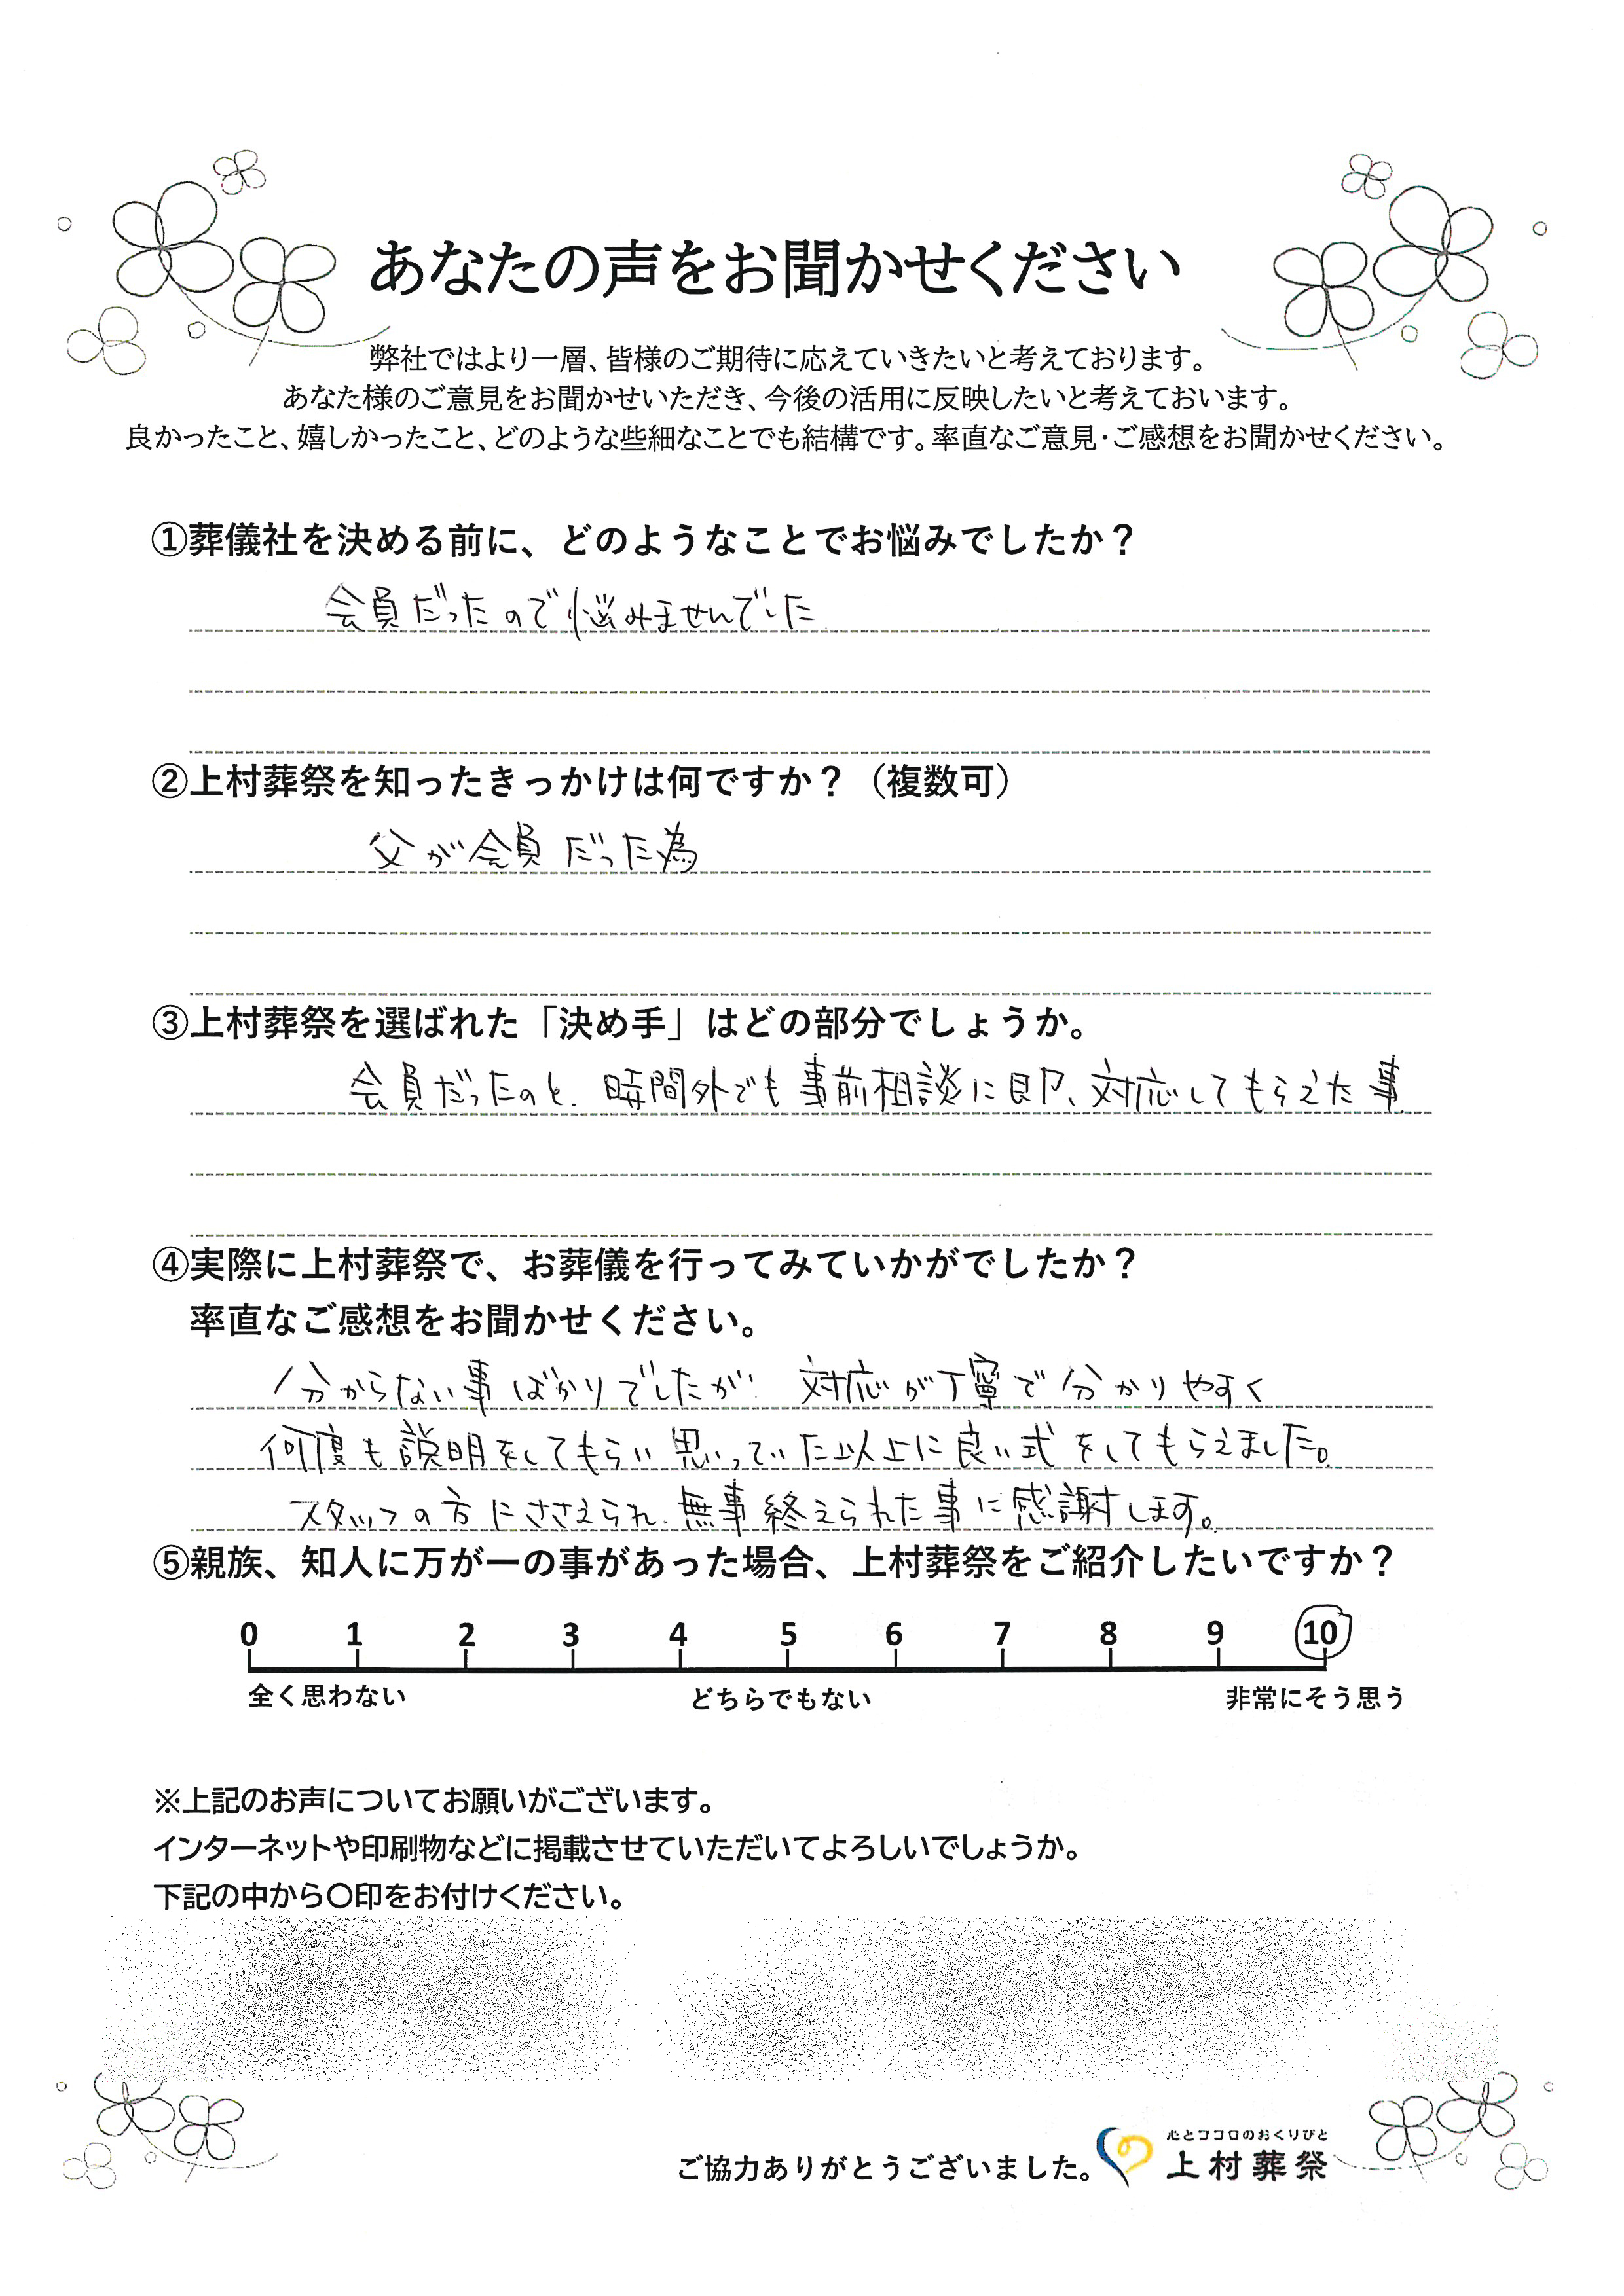 あなたの声をお聞かせください
弊社ではより一層、皆様のご期待に応えていきたいと考えております。
あなた様のご意見をお聞かせいただき、今後の活用に反映したいと考えておいます。
良かったこと、嬉しかったこと、どのような些細なことでも結構です。率直なご意見・ご感想をお聞かせください。
①葬儀社を決める前に、どのようなことでお悩みでしたか？
会員だったので悩みませんでした
②上村葬祭を知ったきっかけは何ですか？（複数可）
父が会員だった為
③上村葬祭を選ばれた「決め手」はどの部分でしょうか。
会員だったのと、時間外でも事前相談に即、対応してもらえた事
④実際に上村葬祭で、お葬儀を行ってみていかがでしたか？
率直なご感想をお聞かせください。
分からない事ばかりでしたが、対応が丁寧で分かりやすく
何度も説明をしてもらい思っていた以上に良い式をしてもらえました。
スタッフの方にささえられ、無事終えられた事に感謝します。
⑤親族、知人に万が一の事があった場合、上村葬祭をご紹介したいですか？
0 1 2 3 4 5 6 7 8 9 10
全く思わない どちらでもない 非常にそう思う
※上記のお声についてお願いがございます。
インターネットや印刷物などに掲載させていただいてよろしいでしょうか。
下記の中から〇印をお付けください。
心とココロのおくりびと
ご協力ありがとうございました。 上村葬祭